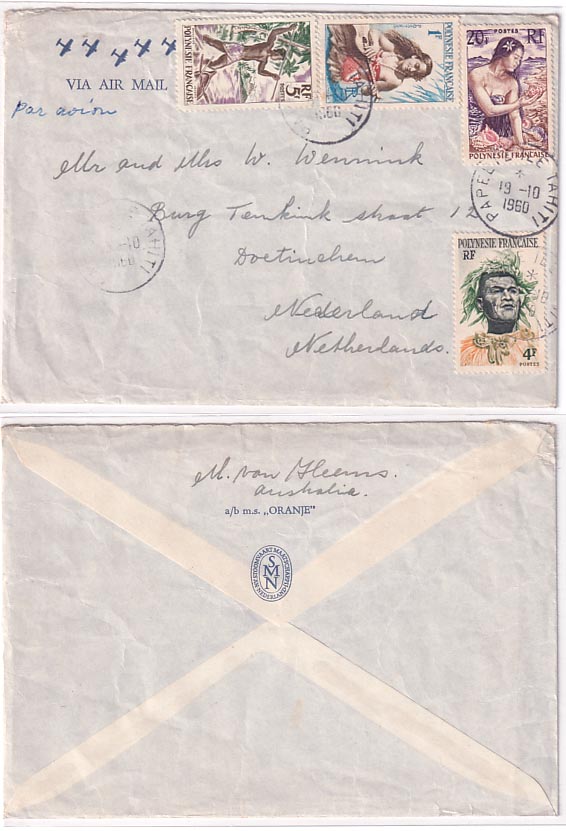 VIA AIR MAIL
Par avion
POLYNESIE FRANÇAISE
RF
5F
POSTES
1F
POLYNESIE FRANÇAISE
20F
POSTES
RF
POLYNESIE FRANÇAISE
Mr and Mrs W. Wennink
Burg Tenkink straat 12
Doetinchem
Nederland
Netherlands.
1960
TAHITI
PAPEETE TAHITI
19 -10
1960
-10
TAHITI
POLYNESIE FRANÇAISE
RF
4F
POSTES
M. van
Australia.
a/b m.s. „ORANJE"
STOOMVAART MAATSCHAPPIJ NEDERLAND
SMN